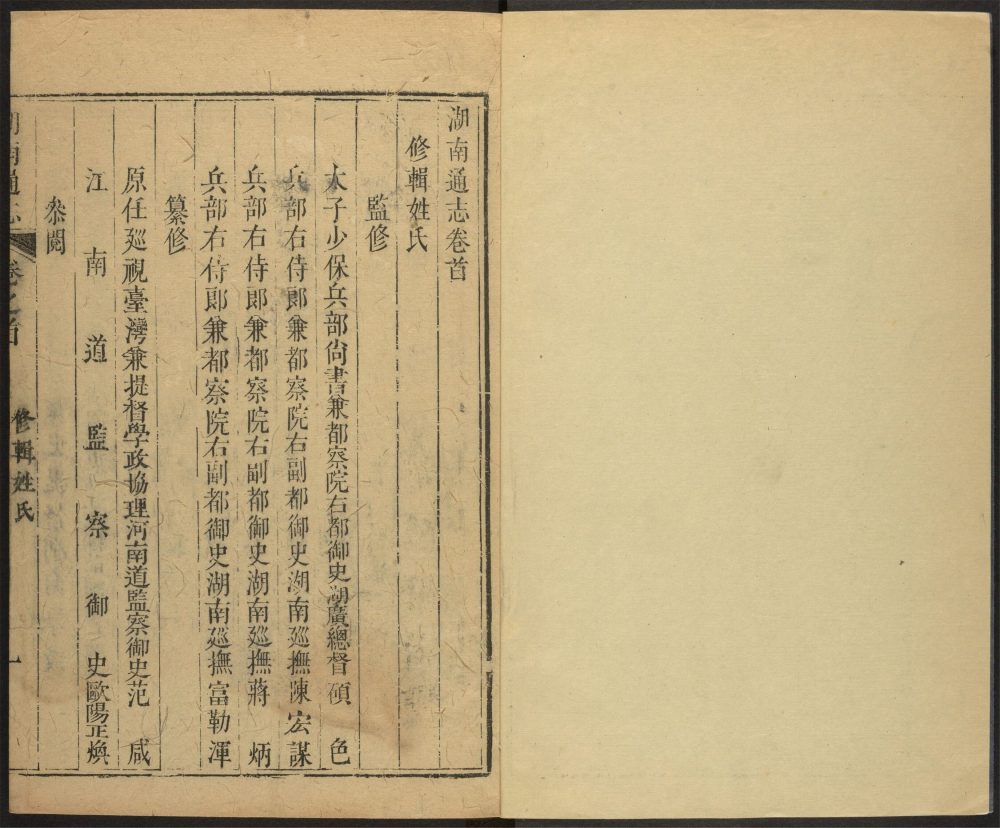 湖南通志卷首
修輯姓氏
監修
太子少保兵部尙書兼都察院右都御史湖廣總督碩　色
兵部右侍郎兼都察院右副都御史湖南廵撫陳宏謀
兵部右侍郎兼都察院右副都御史湖南廵撫蔣　炳
兵部右侍郎兼都察院右副都御史湖南廵撫富勒渾
纂修
原任廵視臺灣兼提督學政協理河南道監察御史范　咸
江南道監察御史歐陽正煥
叅閱
湖南通志 卷之首 修輯姓氏 一